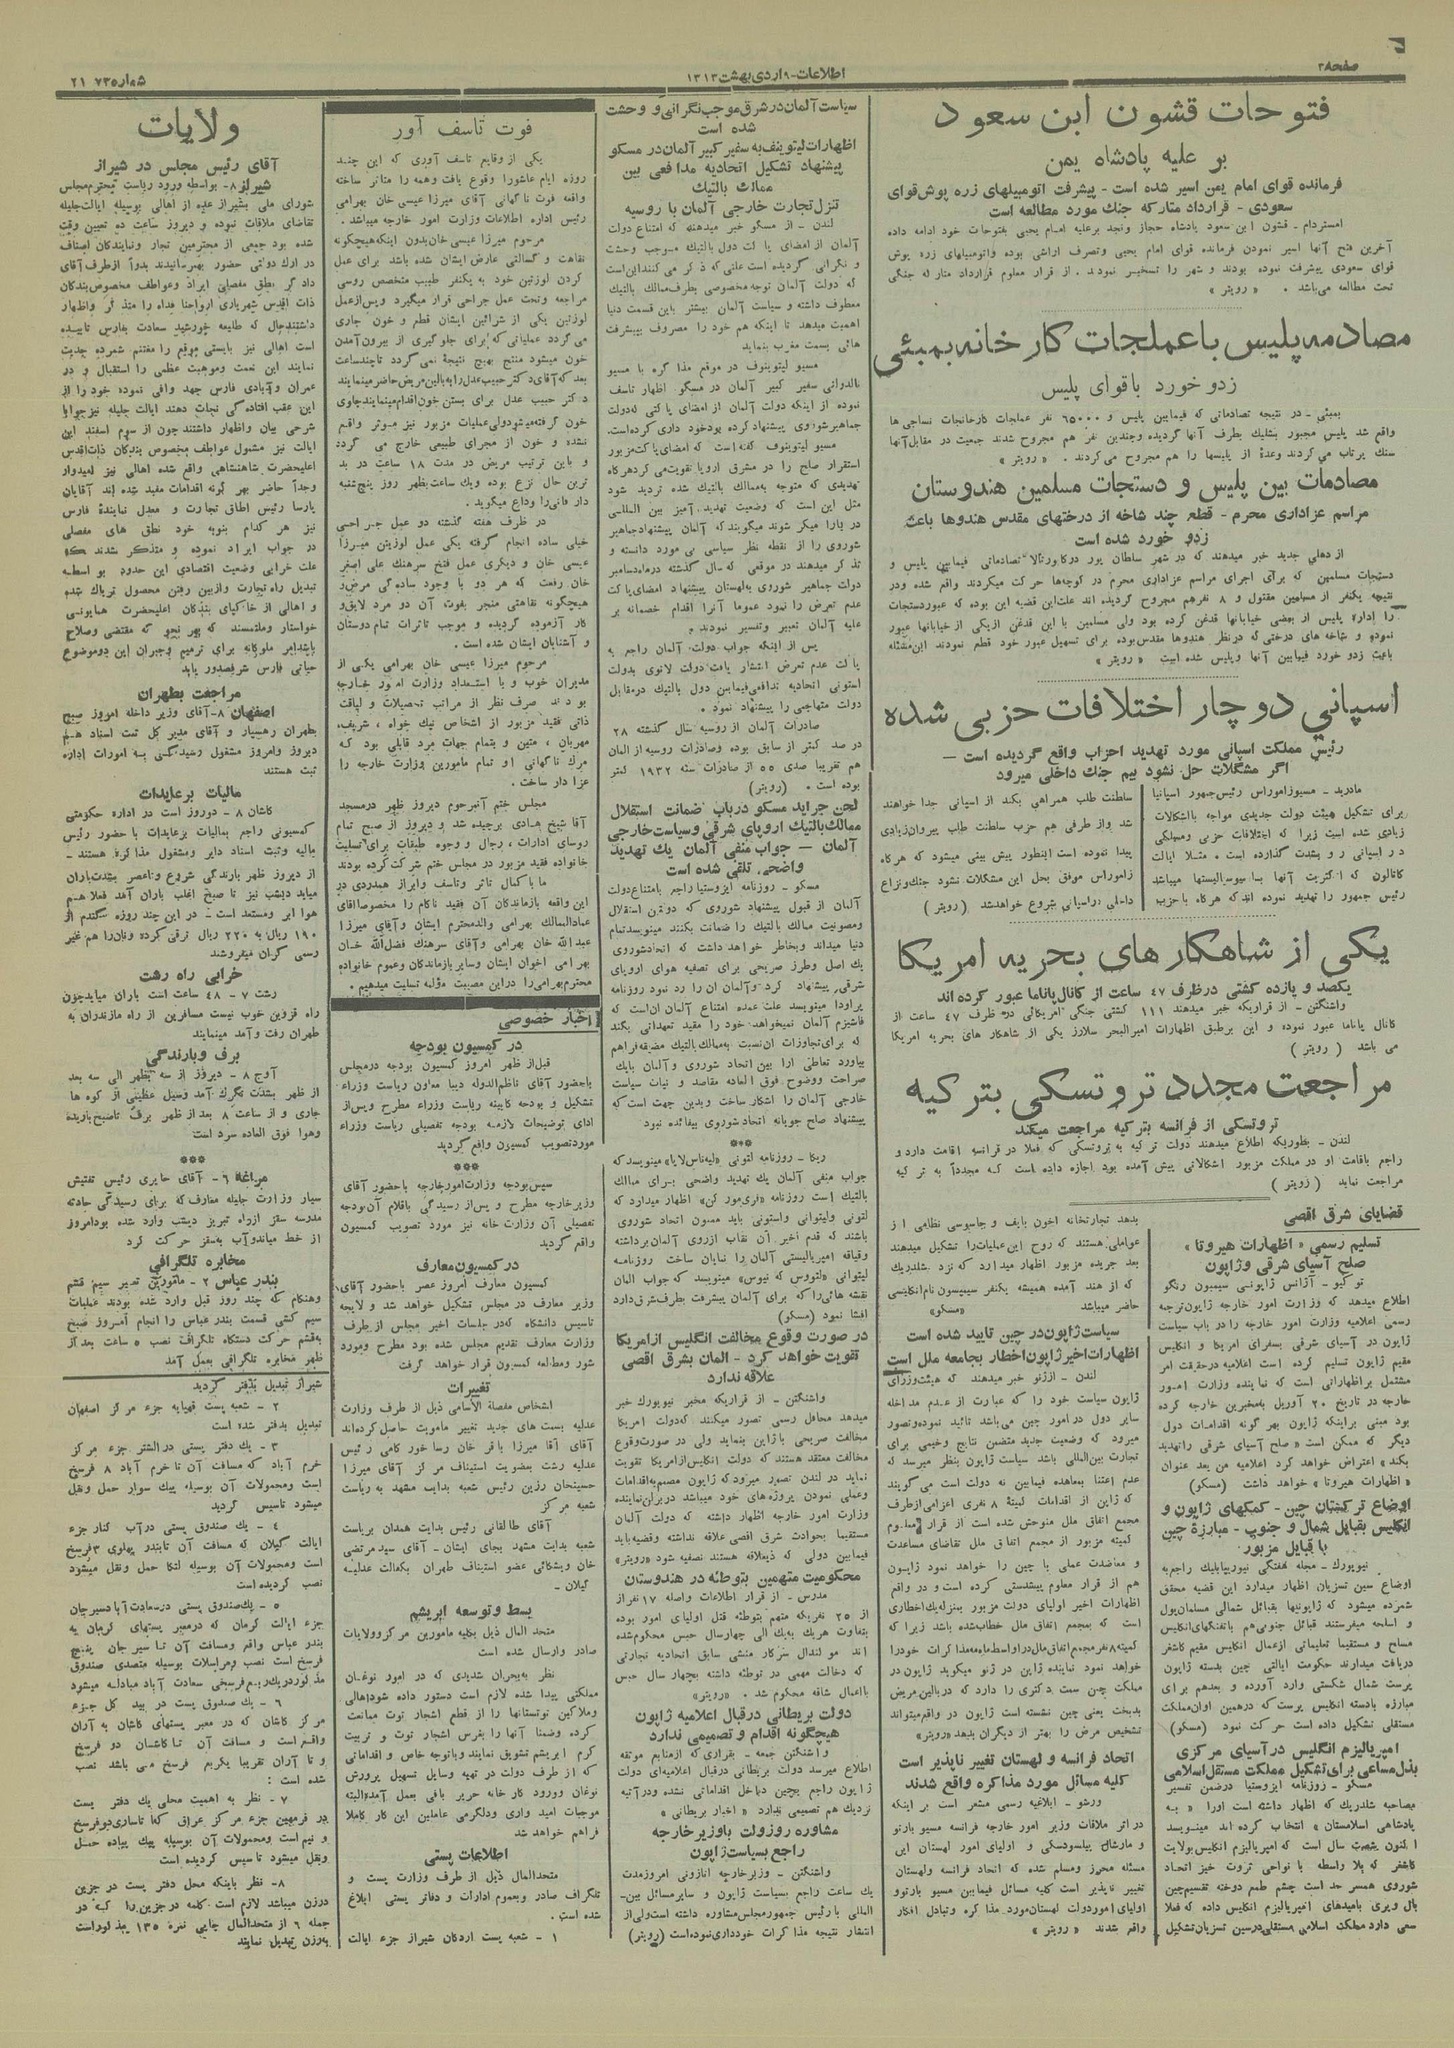 صفحه۲
اطلاعات - ۹ اردی بهشت ۱۳۱۳
شماره ۲۱۷۳۵
فتوحات قشون ابن سعود
بر علیه پادشاه یمن
فرمانده قوای امام یمن اسیر شده است - پیشرفت اتومبیلهای زره پوش قوای
سعودی - قرارداد متارکه جنگ مورد مطالعه است
امستردام - قشون ابن سعود پادشاه حجاز ونجد برعلیه امام یحیی بفتوحات خود ادامه داده
آخرین فتح آنها اسیر نمودن فرمانده قوای امام یحیی وتصرف اراضی بوده واتومبیلهای زره پوش
قوای سعودی پیشرفت نموده بودند و شهر را تسخیر نمودند . از قرار معلوم قرارداد متارکه جنگی
تحت مطالعه می‌باشد . « رویتر »
مصادمه پلیس با عملجات کارخانه بمبئی
زدو خورد باقوای پلیس
بمبئی - در نتیجه تصادماتی که فیمابین پلیس و ۶۵۰۰۰ نفر عملجات کارخانجات نساجی ها
واقع شد پلیس مجبور بشلیک بطرف آنها گردیده وچندین نفر هم مجروح شدند جمعیت در مقابل آنها
سنگ پرتاب می‌کردند وعدهٔ از پلیسها را هم مجروح می‌کردند . « رویتر »
مصادمات بین پلیس و دستجات مسلمین هندوستان
مراسم عزاداری محرم - قطع چند شاخه از درختهای مقدس هندوها باعث
زدو خورد شده است
از دهلی جدید خبر میدهند که در شهر سلطان پور
دستجات مسلمین که برای اجرای مراسم عزاداری محرم در کوچه‌ها حرکت میکردند واقع شده ودر
نتیجه یکنفر از مسلمین مقتول و ۸ نفرهم مجروح گردیده اند علت‌این قضیه این بوده که عبوردستجات
را اداره پلیس از بعضی خیابانها قدغن کرده بود ولی مسلمین با این قدغن ازیکی از خیابانها عبور
نموده و شاخه های درختی که درنظر هندوها مقدس‌بوده برای تسهیل عبور خود قطع نمودند این‌مسئله
باعث زدو خورد فیمابین آنها وپلیس شده است « رویتر »
اسپانی دوچار اختلافات حزبی شده
رئیس مملکت اسپانی مورد تهدید احزاب واقع گردیده است -
اگر مشگلات حل نشود بیم جنگ داخلی میرود
مادرید - مسیوزاموراس رئیس‌جمهور اسپانیا
برای تشکیل هیئت دولت جدیدی مواجه بااشکالات
زیادی شده است زیرا که اختلافات حزبی ومسلکی
در اسپانی رو بشدت گذارده است . مثلا ایالت
کاتالون که اکثریت آنها باسوسیالیستها میباشد
رئیس جمهور را تهدید نموده اندکه هرگاه باحزب
سلطنت طلب همراهی بکند از اسپانی جدا خواهند
شد واز طرفی هم حزب سلطنت طلب پیروان‌زیادی
پیدا نموده است اینطور پیش بینی میشود که هرگاه
زاموراس موفق بحل این مشکلات نشود جنگ‌ونزاع
داخلی دراسپانی شروع خواهدشد ( رویتر )
یکی از شاهکار های بحریه امریکا
یکصد و یازده کشتی درظرف ۴۷ ساعت از کانال پاناما عبور کرده اند
واشنگتن - از قراریکه خبر میدهند ۱۱۱ کشتی جنگی امریکائی در ظرف ۴۷ ساعت از
کانال پاناما عبور نموده و این برطبق اظهارات امیرالبحر سلارز یکی از شاهکار های بحریه امریکا
می باشد ( رویتر )
مراجعت مجدد تروتسکی بترکیه
تروتسکی از فرانسه بترکیه مراجعت میکند
لندن - بطوریکه اطلاع میدهند دولت ترکیه به تروتسکی که فعلا در فرانسه اقامت دارد و
راجع باقامت او در مملکت مزبور اشکالاتی پیش آمده بود اجازه داده است که مجدداً به ترکیه
مراجعت نماید ( رویتر )
قضایای شرق اقصی
تسلیم رسمی « اظهارات هیروتا »
صلح آسیای شرقی وژاپون
توکیو - آژانس ژاپونی سیمبون رنگو
اطلاع میدهد که وزارت امور خارجه ژاپون‌ترجمه
رسمی اعلامیه وزارت امور خارجه را در باب سیاست
ژاپون در آسیای شرقی بسفرای امریکا و انگلیس
مقیم ژاپون تسلیم کرده است اعلامیه درحقیقت امر
مشتمل براظهاراتی است که نماینده وزارت امور
خارجه در تاریخ ۲۰ آوریل بمخبرین خارجه کرده
بود مبنی براینکه ژاپون بهر گونه اقدامات دول
دیگر که ممکن است « صلح آسیای شرقی راتهدید
بکند » اعتراض خواهد کرد اعلامیه من بعد عنوان
« اظهارات هیروتا » خواهد داشت (مسکو)
اوضاع ترکستان چین - کمکهای ژاپون و
انگلیس بقبایل شمال و جنوب - مبارزهٔ چین
با قبایل مزبور
اوضاع سین تسزیان اظهار میدارد این قضیه محقق
شمرده میشود که ژاپونیها بقبائل شمالی مسلمان‌پول
و اسلحه میفرستند قبائل جنوبی‌هم باتفنگهای‌انگلیس
مسلح و مستقیما تعلیماتی ازعمال انگلیس مقیم کاشغر
دریافت میدارند حکومت ایالتی چین بدسته ژاپون
پرست شمال شکستی وارد آورده و بعدهم برای
مبارزه بادسته انگلیس پرست که درهمین اوان‌مملکت
مستقلی تشکیل داده است حرکت نمود (مسکو)
امپریالیزم انگلیس در آسیای مرکزی
بذل مساعی برای تشکیل مملکت مستقل اسلامی
مسکو - روزنامه ایزوستیا درضمن تفسیر
مصاحبه شلدریک که اظهار داشته است اورا « به
پادشاهی اسلامستان » انتخاب کرده اند مینویسد
اکنون شصت سال است که امپریالیزم انگلیس‌بولایت
کاشغر که بلا واسطه با نواحی ثروت خیز اتحاد
شوروی همسر حد است چشم طمع دوخته تقسیم‌چین
سعی دارد مملکت اسلامی مستقلی درسین تسزیان‌تشکیل
بدهد تجارتخانه اخون بایف و جاسوسی نظامی از
عواملی هستند که روح این‌عملیات‌را تشکیل میدهند
بعد جریده مزبور اظهار میدارد که نزد شلدریک
که از هند آمده همیشه یکنفر سیمپسون نام‌انگلیسی
حاضر میباشد «مسکو»
سیاست ژاپون‌در چین تایید شده است
اظهارات‌اخیر ژاپون‌اخطار بجامعه ملل است
لندن - ازژنو خبر میدهند که هیئت‌وزرای
ژاپون سیاست خود را که عبارت ازعدم مداخله
سایر دول درامور چین می‌باشد تائید نموده‌وتصور
میرود که وضعیت جدید متضمن نتایج وخیمی برای
تجارت بین‌المللی باشد سیاست ژاپون بنظر میرسد که
عدم اعتنا بمعاهده فیمابین نه دولت است می گویند
که ژاپن از اقدامات کمیتهٔ ۸ نفری اعزامی‌ازطرف
مجمع اتفاق ملل متوحش شده است از قرار معلوم
کمیته مزبور از مجمع اتفاق ملل تقاضای مساعدت
و معاضدت عملی با چین را خواهد نمود ژاپون
هم از قرار معلوم پیشدستی کرده است و در واقع
اظهارات اخیر اولیای دولت مزبور بمنزله‌یک اخطاری
است که بمجمع اتفاق ملل خطاب‌شده باشد زیرا که
کمیته۸ نفر مجمع‌اتفاق‌ملل‌دراواسط‌ماه‌مه‌مذاکرات خودرا
خواهد نمود نماینده ژاپن در ژنو میگوید ژاپون در
مملکت چین سمت دکتری را دارد که دربالین‌مریض
بدبخت یعنی چین نشسته است ژاپون در واقع‌میتواند
تشخیص مرض را بهتر از دیگران بدهد «رویتر»
اتحاد فرانسه و لهستان تغییر ناپذیر است
کلیه مسائل مورد مذاکره واقع شدند
ورشو - ابلاغیه رسمی مشعر است بر اینکه
در اثر ملاقات وزیر امور خارجه فرانسه مسیو بارتو
و مارشال پیلسودسکی و اولیای امور لهستان این
مسئله محرز ومسلم شده که اتحاد فرانسه ولهستان
تغییر ناپذیر است کلیه مسائل فیمابین مسیو بارتوو
اولیای اموردولت لهستان‌مورد مذاکره وتبادل افکار
واقع شدند « رویتر »
سیاست آلمان در شرق موجب نگرانی و وحشت
شده است
اظهارات لیتوینف به سفیر کبیر آلمان در مسکو
پیشنهاد تشکیل اتحادیه مدافعی بین
ممالک بالتیک
تنزل تجارت خارجی آلمان با روسیه
لندن - از مسکو خبر میدهند که امتناع دولت
آلمان از امضای پاکت دول بالتیک موجب وحشت
و نگرانی گردیده است علتی‌که ذکر می کننداین‌است
که دولت آلمان توجه مخصوصی بطرف‌ممالک بالتیک
معطوف داشته و سیاست آلمان بیشتر باین قسمت دنیا
اهمیت میدهد تا اینکه هم خود را مصروف بپیشرفت
هائی بسمت مغرب بنماید
مسیو لیتوینوف در موقع مذاکره با مسیو
نادولنی سفیر کبیر آلمان در مسکو اظهار تاسف
نموده از اینکه دولت آلمان از امضای پاکتی که‌دولت
جماهیرشوروی پیشنهاد کرده بودخود داری کرده‌است.
مسیو لیتوینوف گفته است که امضای پاکت‌مزبور
استقرار صلح را در مشرق اروپا تقویت‌می کردهرگاه
تهدیدی که متوجه بممالک بالتیک شده تردید شود
مثل این است که وضعیت تهدید آمیز بین المللی
شوروی را از نقطه نظر سیاسی بی مورد دانسته و
تذکر میدهند در موقعی که سال گذشته درماه‌دسامبر
دولت جماهیر شوروی به‌لهستان پیشنهاد امضای‌پاکت
عدم تعرض را نمود عموما آنرا اقدام خصمانه بر
علیه آلمان تعبیر وتفسیر نمودند .
پس از اینکه جواب دولت آلمان راجع به
پاکت عدم تعرض انتشار یافت دولت لاتوی بدولت
استونی اتحادیه تدافعی‌فیمابین دول بالتیک درمقابل
دولت متهاجمی را پیشنهاد نمود.
صادرات آلمان از روسیه سال گذشته ۲۸
در صد کمتر از سابق بوده وصادرات روسیه‌از المان
هم تقریبا صدی ۵۵ از صادرات سنه ۱۹۳۲ کمتر
بوده است . (رویتر)
لحن جراید مسکو درباب ضمانت استقلال
ممالک بالتیک اروپای شرقی وسیاست خارجی
آلمان - جواب منفی آلمان یک تهدید
واضحی تلقی شده است
مسکو - روزنامه ایزوستیا راجع بامتناع‌دولت
آلمان از قبول پیشنهاد شوروی که دولتین استقلال
ومصونیت ممالک بالتیک را ضمانت بکنند مینویسدتمام
دنیا میداند وبخاطر خواهد داشت که اتحادشوروی
یک اصل وطرز صریحی برای تصفیه هوای اروپای
شرقی پیشنهاد کرد وآلمان آن را رد نمود روزنامه
پراودا مینویسد علت‌عمده امتناع آلمان این‌است‌که
فاشیزم آلمان نمیخواهد خود را مقید تعهداتی بکند
که برای‌تجاوزات آن‌نسبت به‌ممالک بالتیک مضیقه‌فراهم
بیاورد تعاطی آرا بین اتحاد شوروی وآلمان بایک
صراحت ووضوح فوق العاده مقاصد و نیات سیاست
خارجی آلمان را اشکار ساخت وبدین جهت است‌که
پیشنهاد صلح جویانه اتحاد شوروی بیفائده نبود
***
ریگا - روزنامه لتونی «لیه‌ناس‌لاپا» مینویسد که
جواب منفی آلمان یک تهدید واضحی برای ممالک
لتونی ولیتوانی واستونی باید ممنون اتحاد شوروی
باشند که قدم اخیر آن نقاب ازروی آلمان‌برداشته
وقیافه امپریالیستی آلمان را نمایان ساخت روزنامه
لیتوانی «لتووس که نیوس» مینویسد که جواب المان
نقشه هائی‌را که برای آلمان پیشرفت بطرف‌شرق‌دارد
افشا نمود (مسکو)
در صورت وقوع مخالفت انگلیس از امریکا
تقویت خواهد کرد - المان بشرق اقصی
علاقه ندارد
واشنگتن - از قراریکه مخبر نیویورک خبر
میدهد محافل رسمی تصور میکنند که‌دولت امریکا
مخالفت صریحی با ژاپن بنماید ولی در صورت‌وقوع
مخالفت معتقد هستند که دولت انگلیس‌ازامریکا تقویت
نماید در لندن تصور میرودکه ژاپون مصمم‌به‌اقدامات
وعملی نمودن پروژه‌های خود میباشد دربرلن‌نماینده
وزارت امور خارجه اظهار داشته که دولت آلمان
مستقیما بحوادث شرق اقصی علاقه نداشته وقضیه‌باید
فیمابین دولی که ذیعلاقه هستند تصفیه شود «رویتر»
محکومیت متهمین بتوطئه در هندوستان
مدرس - از قرار اطلاعات واصله ۱۷ نفر از
از ۲۵ نفریکه متهم بتوطئه قتل اولیای امور بوده
بتفاوت هریک به‌یک الی چهارسال حبس محکوم‌شده
اند مولندال سرکار منشی سابق اتحادیه تجارتی
که دخالت مهمی در توطئه داشته بچهار سال حبس
بااعمال شاقه محکوم شد . «رویتر»
دولت بریطانی درقبال اعلامیه ژاپون
هیچگونه اقدام و تصمیمی ندارد
واشنگتن جمعه - بقراری که ازمنابع موثقه
اطلاع میرسد دولت بریطانی درقبال اعلامیه‌ای دولت
ژاپون راجع بچین داخل اقداماتی نشده ودرآتیه
نزدیک هم تصمیمی ندارد « اخبار بریطانی »
مشاوره روزولت باوزیر خارجه
راجع بسیاست ژاپون
واشنگتن - وزیر خارجه اتازونی امروزمدت
یک ساعت راجع بسیاست ژاپون و سایر مسائل بین-
المللی با رئیس جمهور مجلس‌مشاوره داشته است‌ولی از
انتشار نتیجه مذاکرات خودداری نموده‌است (رویتر)
فوت تاسف آور
یکی از وقایع تاسف آوری که این چند
روزه ایام عاشورا وقوع یافت وهمه را متاثر ساخته
واقعه فوت ناگهانی آقای میرزا عیسی خان بهرامی
رئیس اداره اطلاعات وزارت امور خارجه میباشد .
مرحوم میرزا عیسی خان‌بدون اینکه‌هیچگونه
نقاهت و کسالتی عارض ایشان شده باشد برای عمل
کردن لوزتین خود به یکنفر طبیب متخصص روسی
مراجعه وتحت عمل جراحی قرار میگیرد وپس‌ازعمل
لوزتین یکی از شرائین ایشان قطع و خون جاری
می گردد عملیاتی که برای جلوگیری از بیرون‌آمدن
خون میشود منتج بهیچ نتیجهٔ نمی گردد تاچندساعت
بعد که‌آقای دکتر حبیب‌عدل‌رابه‌بالین‌مریض‌حاضرمینمایند
دکتر حبیب عدل برای بستن خون‌اقدام‌مینمایندجلوی
خون گرفته‌میشودولی‌عملیات مزبور نیز موثر واقع
نشده و خون از مجرای طبیعی خارج می گردد
و باین ترتیب مریض در مدت ۱۸ ساعت در بد
ترین حال نزع بوده ویک ساعت‌بظهر روز پنج‌شنبه
دار فانی‌را وداع میگوید .
در ظرف هفته گذشته دو عمل جراحی
خیلی ساده انجام گرفته یکی عمل لوزتین میرزا
عیسی خان و دیگری عمل فتح سرهنک علی اصغر
خان رفعت که هر دو با وجود سادگی مرض‌و
هیچگونه نقاهتی منجر بفوت آن دو مرد لایق‌و
کار آزموده گردیده و موجب تاثرات تمام دوستان
و آشنایان ایشان شده است .
مرحوم میرزا عیسی خان بهرامی یکی از
مدیران خوب و با استعداد وزارت امور خارجه
بودند صرف نظر از مراتب تحصیلات و لیاقت
ذاتی فقید مزبور از اشخاص نیک خواه ، شریف،
مهربان ، متین و بتمام جهات مرد قابلی بود که
مرگ ناگهانی او تمام مامورین وزارت خارجه را
عزا دار ساخت .
مجلس ختم آنمرحوم دیروز ظهر درمسجد
آقا شیخ هادی برچیده شد و دیروز از صبح تمام
روسای ادارات ، رجال و وجوه طبقات برای‌تسلیت
خانواده فقید مزبور در مجلس ختم شرکت‌کرده بودند
ما باکمال تاثر وتاسف وابراز همدردی در
این واقعه بازماندگان آن فقید ناکام را مخصوصاآقای
عمادالممالک بهرامی والدمحترم ایشان وآقای میرزا
عبدالله خان بهرامی وآقای سرهنک فضل‌الله خان
بهرامی اخوان ایشان وسایر بازماندگان وعموم خانواده
محترم‌بهرامی‌را دراین مصیبت مؤلمه تسلیت میدهیم .
اخبار خصوصی
در کمسیون بودجه
قبل‌از ظهر امروز کمسیون بودجه درمجلس
باحضور آقای ناظم‌الدوله دیبا معاون ریاست وزراء
تشکیل و بودجه کابینه ریاست وزراء مطرح وپس‌از
ادای توضیحات لازمه بودجه تفصیلی ریاست وزراء
موردتصویب کمسیون واقع‌گردید
***
سپس‌بودجه وزارت‌امورخارجه باحضور آقای
وزیرخارجه مطرح و پس‌از رسیدگی باقلام آن‌بودجه
تفصیلی آن وزارت خانه نیز مورد تصویب کمسیون
واقع گردید
در کمسیون معارف
کمسیون معارف امروز عصر باحضور آقای
وزیر معارف در مجلس تشکیل خواهد شد و لایحه
تاسیس دانشگاه که‌در جلسات اخیر مجلس از طرف
وزارت معارف تقدیم مجلس شده بود مطرح ومورد
شور ومطالعه کمسیون قرار خواهد گرفت
تغییرات
اشخاص مفصلة الاسامی ذیل از طرف وزارت
عدلیه بسمت های جدید تغییر ماموریت حاصل‌کرده‌اند
آقای آقا میرزا باقر خان رسا خور کامی رئیس
عدلیه رشت بعضویت استیناف مرکز آقای میرزا
حسینخان رزین رئیس شعبه بدایت مشهد به ریاست
شعبه مرکز
آقای طالقانی رئیس بدایت همدان بریاست
شعبه بدایت مشهد بجای ایشان - آقای سید مرتضی
خان ویشکائی عضو استیناف طهران بکفالت عدلیه
گیلان -
بسط و توسعه ابریشم
متحد المال ذیل بکلیه مامورین مرکز وولایات
صادر وارسال شده است
نظر به‌بحران شدیدی که در امور نوغان
مملکتی پیدا شده لازم است دستور داده شوداهالی
وملاکین توتستانها را از قطع اشجار توت ممانعت
کرده وضمنا آنها را بغرس اشجار توت و تربیت
کرم ابریشم تشویق نمایند وباتوجه خاص و اقداماتی
که از طرف دولت در تهیه وسایل تسهیل پرورش
نوغان وورود کار خانه حریر بافی بعمل آمده‌البته
موجبات امید واری ودلگرمی عاملین این کار کاملا
فراهم خواهد شد
اطلاعات پستی
متحدالمال ذیل از طرف وزارت پست و
تلگراف صادر وبعموم ادارات و دفاتر پستی ابلاغ
شده است .
۱ - شعبه پست اردکان شیراز جزء ایالت
ولایات
آقای رئیس مجلس در شیراز
شیراز ۸ - بواسطه ورود ریاست محترم‌مجلس
شورای ملی بشیراز عده از اهالی بوسیله ایالت‌جلیله
تقاضای ملاقات نموده و دیروز ساعت ده تعیین وقت
شده بود جمعی از محترمین تجار ونمایندگان اصناف
در ارک دولتی حضور بهمرسانیدند بدواً ازطرف‌آقای
دادگر نطق مفصلی ایراد وعواطف مخصوص‌بندگان
ذات اقدس شهریاری ارواحنا فداه را متذکر واظهار
داشتند حال که طلیعه خورشید سعادت بفارس تابیده
است اهالی نیز بایستی موقع را مغتنم شمرده جدیت
نمایند این نعمت وموهبت عظمی را استقبال و در
عمران وآبادی فارس جهد وافی نموده خود را از
این عقب افتادگی نجات دهند ایالت جلیله نیز جواباً
شرحی بیان واظهار داشتند چون از سوم اسفند این
ایالت نیز مشمول عواطف مخصوص بندگان ذات‌اقدس
اعلیحضرت شاهنشاهی واقع شده اهالی نیز امیدوار
وجداً حاضر بهر گونه اقدامات مفید شده اند آقایان
پارسا رئیس اطاق تجارت و معدل نماینده فارس
نیز هر کدام بنوبه خود نطق های مفصلی
در جواب ایراد نموده و متذکر شدند که
علت خرابی وضعیت اقتصادی این حدود بواسطه
تبدیل راه تجارت وازبین رفتن محصول تریاک شده
و اهالی از خاکپای بندگان اعلیحضرت همایونی
خواستار وملتمسند که بهر نحو که مقتضی وصلاح
باشدامر ملوکانه برای ترمیم وجبران این دوموضوع
حیاتی فارس شرفصدور یابد
مراجعت بطهران
اصفهان ۸ - آقای وزیر داخله امروز صبح
بطهران رهسپار و آقای مدیر کل ثبت اسناد هم
دیروز وامروز مشغول رسیدگی به امورات اداره
ثبت هستند
مالیات بر عایدات
کاشان ۸ - دوروز است در اداره حکومتی
کمسیونی راجع بمالیات برعایدات با حضور رئیس
مالیه وثبت اسناد دایر ومشغول مذاکره هستند -
از دیروز ظهر بارندگی شروع وتاعصر بشدت‌باران
میاید دیشب نیز تا صبح اغلب باران آمد فعلا هم
هوا ابر ومستعد است - در این چند روزه گندم از
۱۹۰ ریال به ۲۲۰ ریال ترقی کرده ونان‌را هم غیر
رسمی گران میفروشند
خرابی راه رشت
رشت ۷ - ۴۸ ساعت است باران میاید‌چون
راه قزوین خوب نیست مسافرین از راه مازندران به
طهران رفت وآمد مینمایند
برف و بارندگی
آوج ۸ - دیروز از سه بظهر الی سه بعد
از ظهر بشدت تگرگ آمد وسیل عظیمی از کوه ها
جاری و از ساعت ۸ بعد از ظهر برف تاصبح‌باریده
وهوا فوق العاده سرد است
***
مراغه ۶ - آقای حایری رئیس تفتیش
سیار وزارت جلیله معارف که برای رسیدگی حادثه
مدرسه سقز ازراه تبریز دیشب وارد شده بودامروز
از خط میاندوآب به‌سقز حرکت کرد
مخابره تلگرافی
بندر عباس ۲ - مامورین تعمیر سیم قشم
وهنگام که چند روز قبل وارد شده بودند عملیات
سیم کشی قسمت بندر عباس را انجام امروز صبح
به‌قشم حرکت دستگاه تلگراف نصب ۵ ساعت بعد از
ظهر مخابره تلگرافی بعمل آمد
شیراز تبدیل بدفتر گردید
۲ - شعبه پست قمپایه جزء مرکز اصفهان
تبدیل بدفتر شده است
۳ - یک دفتر پستی درالشتر جزء مرکز
خرم آباد که مسافت آن تاخرم آباد ۸ فرسخ
است ومحمولات آن بوسیله پیک سوار حمل ونقل
میشود تاسیس گردید
۴ - یک صندوق پستی درآب کنار جزء
ایالت گیلان که مسافت آن تابندر پهلوی ۳فرسخ
است ومحمولات آن بوسیله لتکا حمل ونقل میشود
نصب گردیده است
۵ - یک‌صندوق پستی درسعادت آبادسیرجان
جزء ایالت کرمان که درمعبر پستهای کرمان به
بندر عباس واقع ومسافت آن تا سیرجان پنج
فرسخ است نصب ومراسلات بوسیله متصدی صندوق
۶ - یک صندوق پست در بید گل جزء
مرکز کاشان که در معبر پستهای کاشان به آران
واقع‌است و مسافت آن تاکاشان دو فرسخ
و تا آران تقریبا یکربع فرسخ می باشد نصب
شده است :
۷ - نظر به اهمیت محلی یک دفتر پست
در فرمهین جزء مرکز عراق که‌تاساری‌دوفرسخ
و نیم است ومحمولات آن بوسیله پیک پیاده حمل
ونقل میشود تاسیس گردیده است
۸ - نظر باینکه محل دفتر پست در جزین
درزن میباشد لازم است کلمه درجزین را که در
جمله ۶ از متحدالمال چاپی نمره ۱۳۵ مذکوراست
به‌رزن تبدیل نمایند